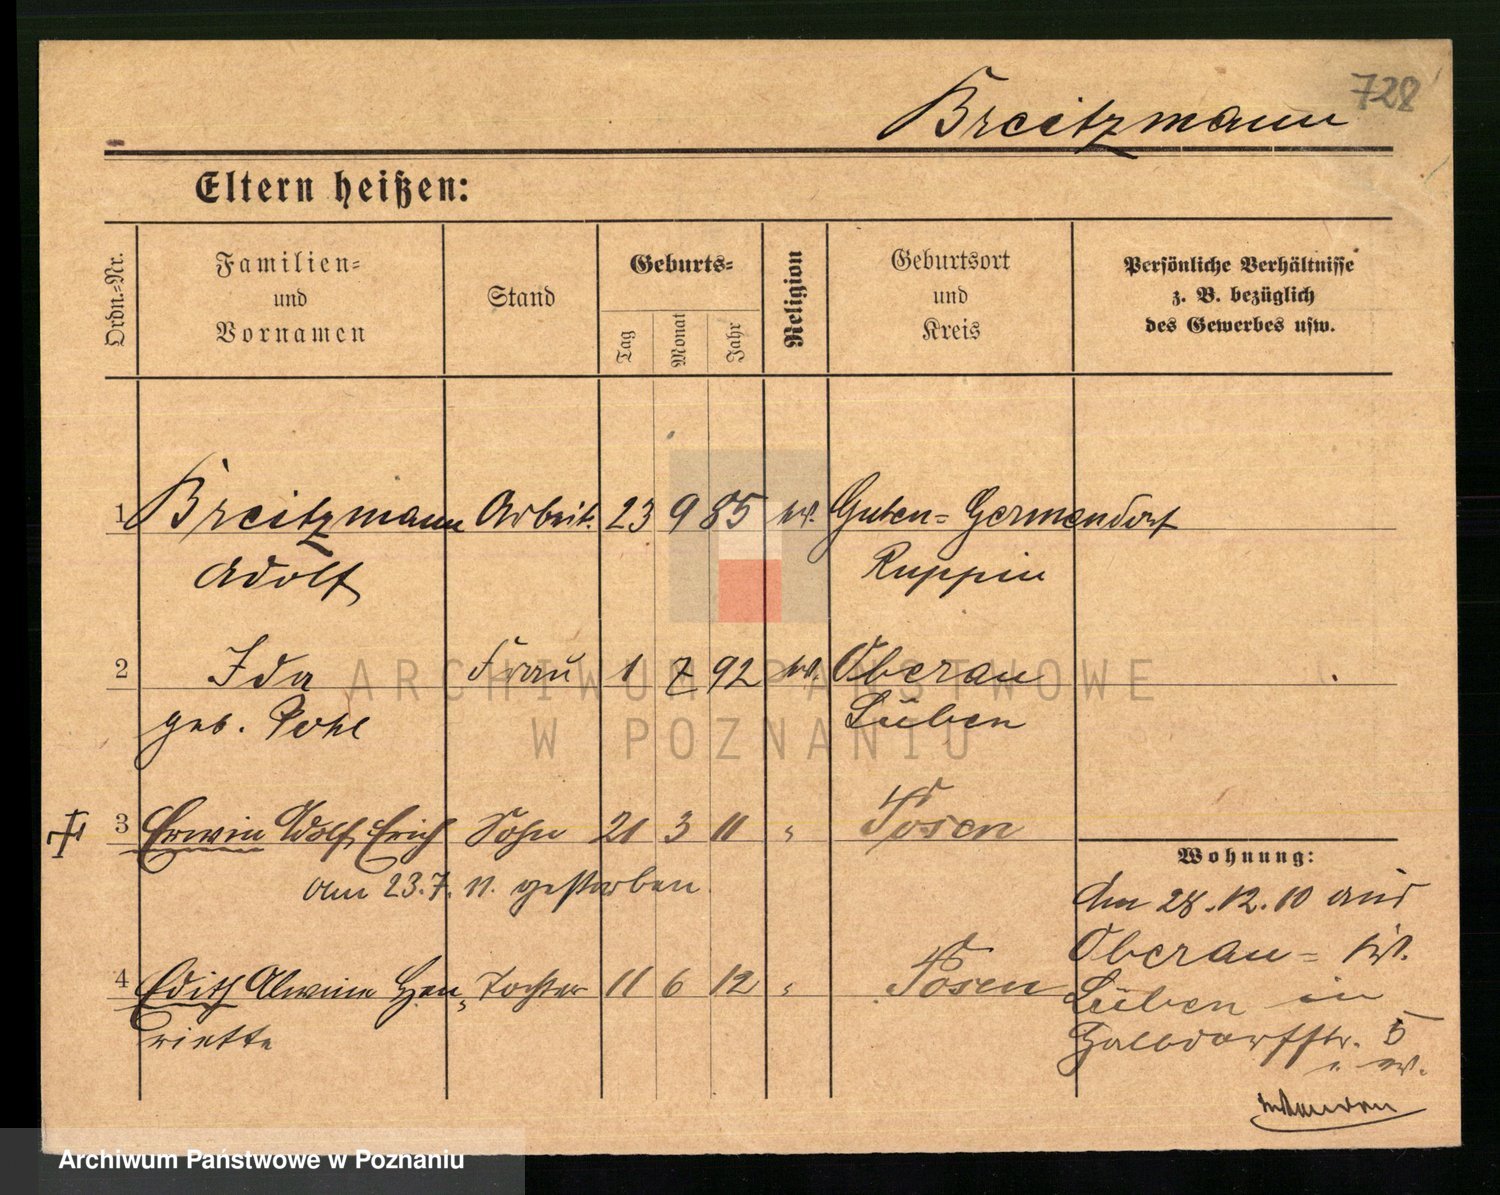 728
Breitzmann
Eltern heißen:
Ordn.-Nr.
Familien-
und
Vornamen
Stand
Geburts-
Tag
Monat
Jahr
Religion
Geburtsort
und
Kreis
Persönliche Verhältnisse
z. B. bezüglich
des Gewerbes usw.
1 Breitzmann Arbeit. 23 9 85 Guten-Germendorf
Adolf Ruppin
2 Ida Frau 1 7 92 Oberau
geb. Pohl Lüben
3 Erwin Adolf Erich Sohn 21 3 11 " Posen
am 23.7.11. gestorben
4 Edith Alwine Hen- Tochter 11 6 12 " Posen
riette
Wohnung:
Am 28.12.10 aus
Oberau-
Lüben in
5
ARCHIWUM PAŃSTWOWE
W POZNANIU
Archiwum Państwowe w Poznaniu